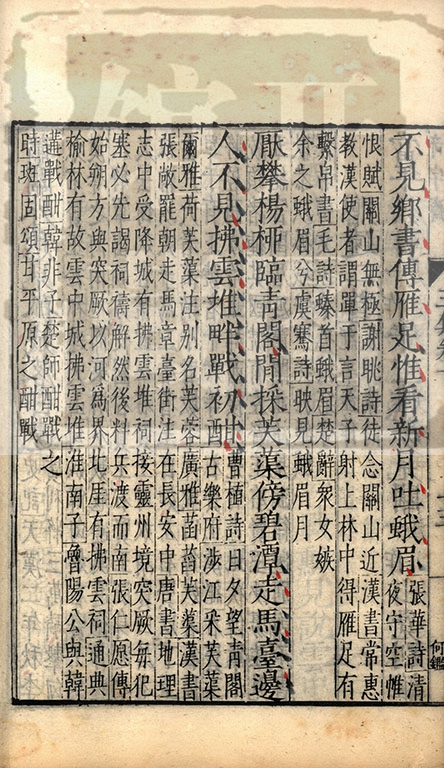 不見鄉書傳雁足惟看新月吐蛾眉
張華詩清
夜守空帷
恨賦關山無極謝眺詩徒念關山近漢書常惠
教漢使者謂單于言天子射上林中得雁足有
繫帛書毛詩螓首蛾眉楚辭衆女嫉
余之蛾眉兮虞騫詩映見蛾眉月
厭攀楊栁臨靑閣閒採芙蕖傍碧潭走馬臺邊
人不見拂雲堆畔戰初酣
曹植詩日夕望靑閣
古樂府涉江采芙蕖
爾雅荷芙蕖注别名芙蓉廣雅菡萏芙蕖漢書
張敞罷朝走馬章臺街注在長安中唐書地理
志中受降城有拂雲堆祠接靈州境突厥每犯
塞必先謁祠禱解然後料兵渡而南張仁愿傳
始朔方與突厥以河爲界北厓有拂雲祠通典
榆林有故雲中城拂雲堆淮南子魯陽公與韓
遘戰酣韓非子楚師酣戰之
時班固頌甘平原之酣戰
何鑑